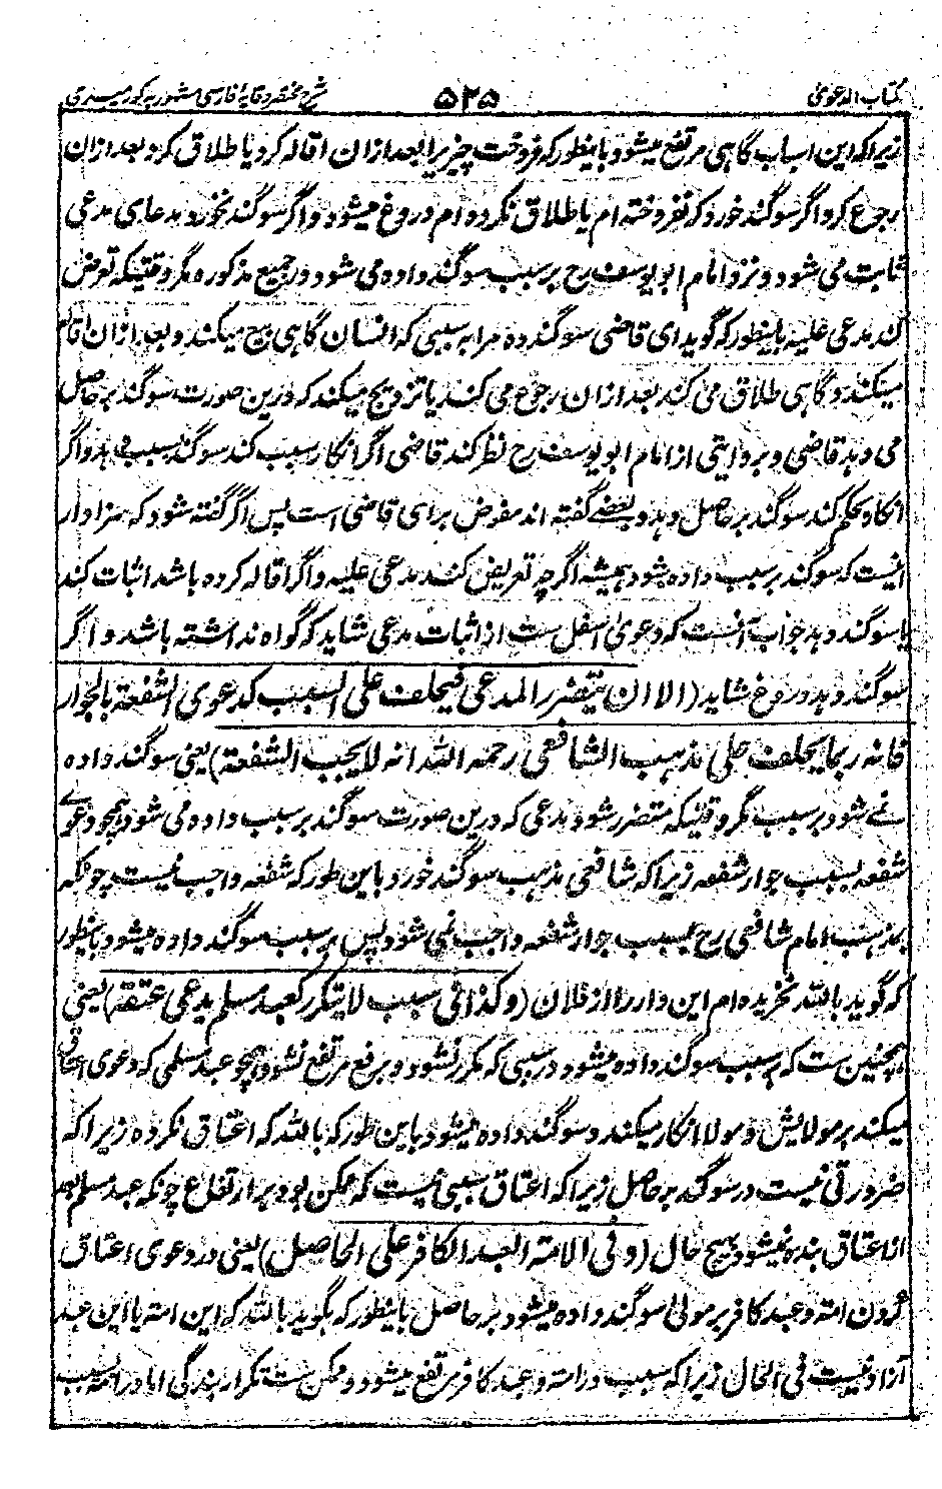 کتاب الدعوی
۵۲۵
شرح مختصر وقایه فارسی مشهور به کور میسدی
زیرا که این اسباب گاہی مرتفع میشود باینطور که فروخت چیزیرا بعد ازان اقاله کرد یا طلاق کرد بعد ازان
رجوع کرد اگر سوگند خورد که نفروخته ام یا طلاق نکرده ام دروغ میشود و اگر سوگند نخورد مدعای مدعی
ثابت می شود و نزد امام ابو یوسف رح بر سبب سوگند داده می شود در جمیع مذکوره مگر وقتیکه تعرض
کند مدعی علیه باینطور که گوید ای قاضی سوگند ده مرا بر سببی که انسان گاہی بیع میکند و بعد ازان اقاله
میکند و گاہی طلاق می کند بعد ازان رجوع می کند یا تزویج میکند که درین صورت سوگند بر حاصل
می دہد قاضی و بروایتی از امام ابو یوسف رح نظر کند قاضی اگر انکار سبب کند سوگند بسبب دہد و اگر
انکار حکم کند سوگند بر حاصل دہد و بعضے گفته اند مفوض برای قاضی است پس اگر گفته شود که سزاوار
اینست که سوگند بر سبب داده شود ہمیشه اگرچه تعریض کند مدعی علیه و اگر اقاله کرده باشد اثبات کند
یا سوگند دہد جواب آنست که دعوی اسفل ست از اثبات مدعی شاید که گواه نداشته باشد و اگر
سوگند دہد دروغ شاید (الا ان یتضرر المدعی فیحلف علی السبب کدعوی الشفعة بالجوار
فانه ربما یحلف علی مذہب الشافعی رحمه الله انه لا یجب الشفعة) یعنی سوگند داده
نمے شود بر سبب مگر وقتیکه متضرر شود مدعی که درین صورت سوگند بر سبب داده می شود ہمچو دعوے
شفعه بسبب جوار شفعه زیرا که شافعی مذہب سوگند خورد باین طور که شفعه واجب نیست چونکه
بمذہب امام شافعی رح بسبب جوار شفعه واجب نمی شود پس بر سبب سوگند داده میشود باینطور
که گوید بالله نخریده ام این دار را از فلان (وکذا فی سبب لا یتکرر کعبد مسلم یدعی عتقه) یعنی
ہمچنین ست که بر سبب سوگند داده میشود در سببی که مکرر نشود و برفع مرتفع نشود ہمچو عبد مسلمی که دعوی اعتاق
میکند بر مولایش و مولا انکار میکند و سوگند داده میشود باین طور که بالله که اعتاق نکرده زیرا که
ضرورتی نیست در سوگند بر حاصل زیرا که اعتاق سببی نیست که ممکن بود بر ارتفاع چونکه عبد مسلم بعد
از اعتاق بنده نمیشود بہیچ حال (وفی الامة العبد الکافر علی الحاصل) یعنی در دعوی اعتاق
کردن امته و عبد کافر بر مولی سوگند داده میشود بر حاصل باینطور که بگوید بالله که این امته یا این عبد
آزاد نیست فی الحال زیرا که سبب در امته و عبد کافر مرتفع میشود و ممکن ست تکرار بندگی اما در امته بسبب